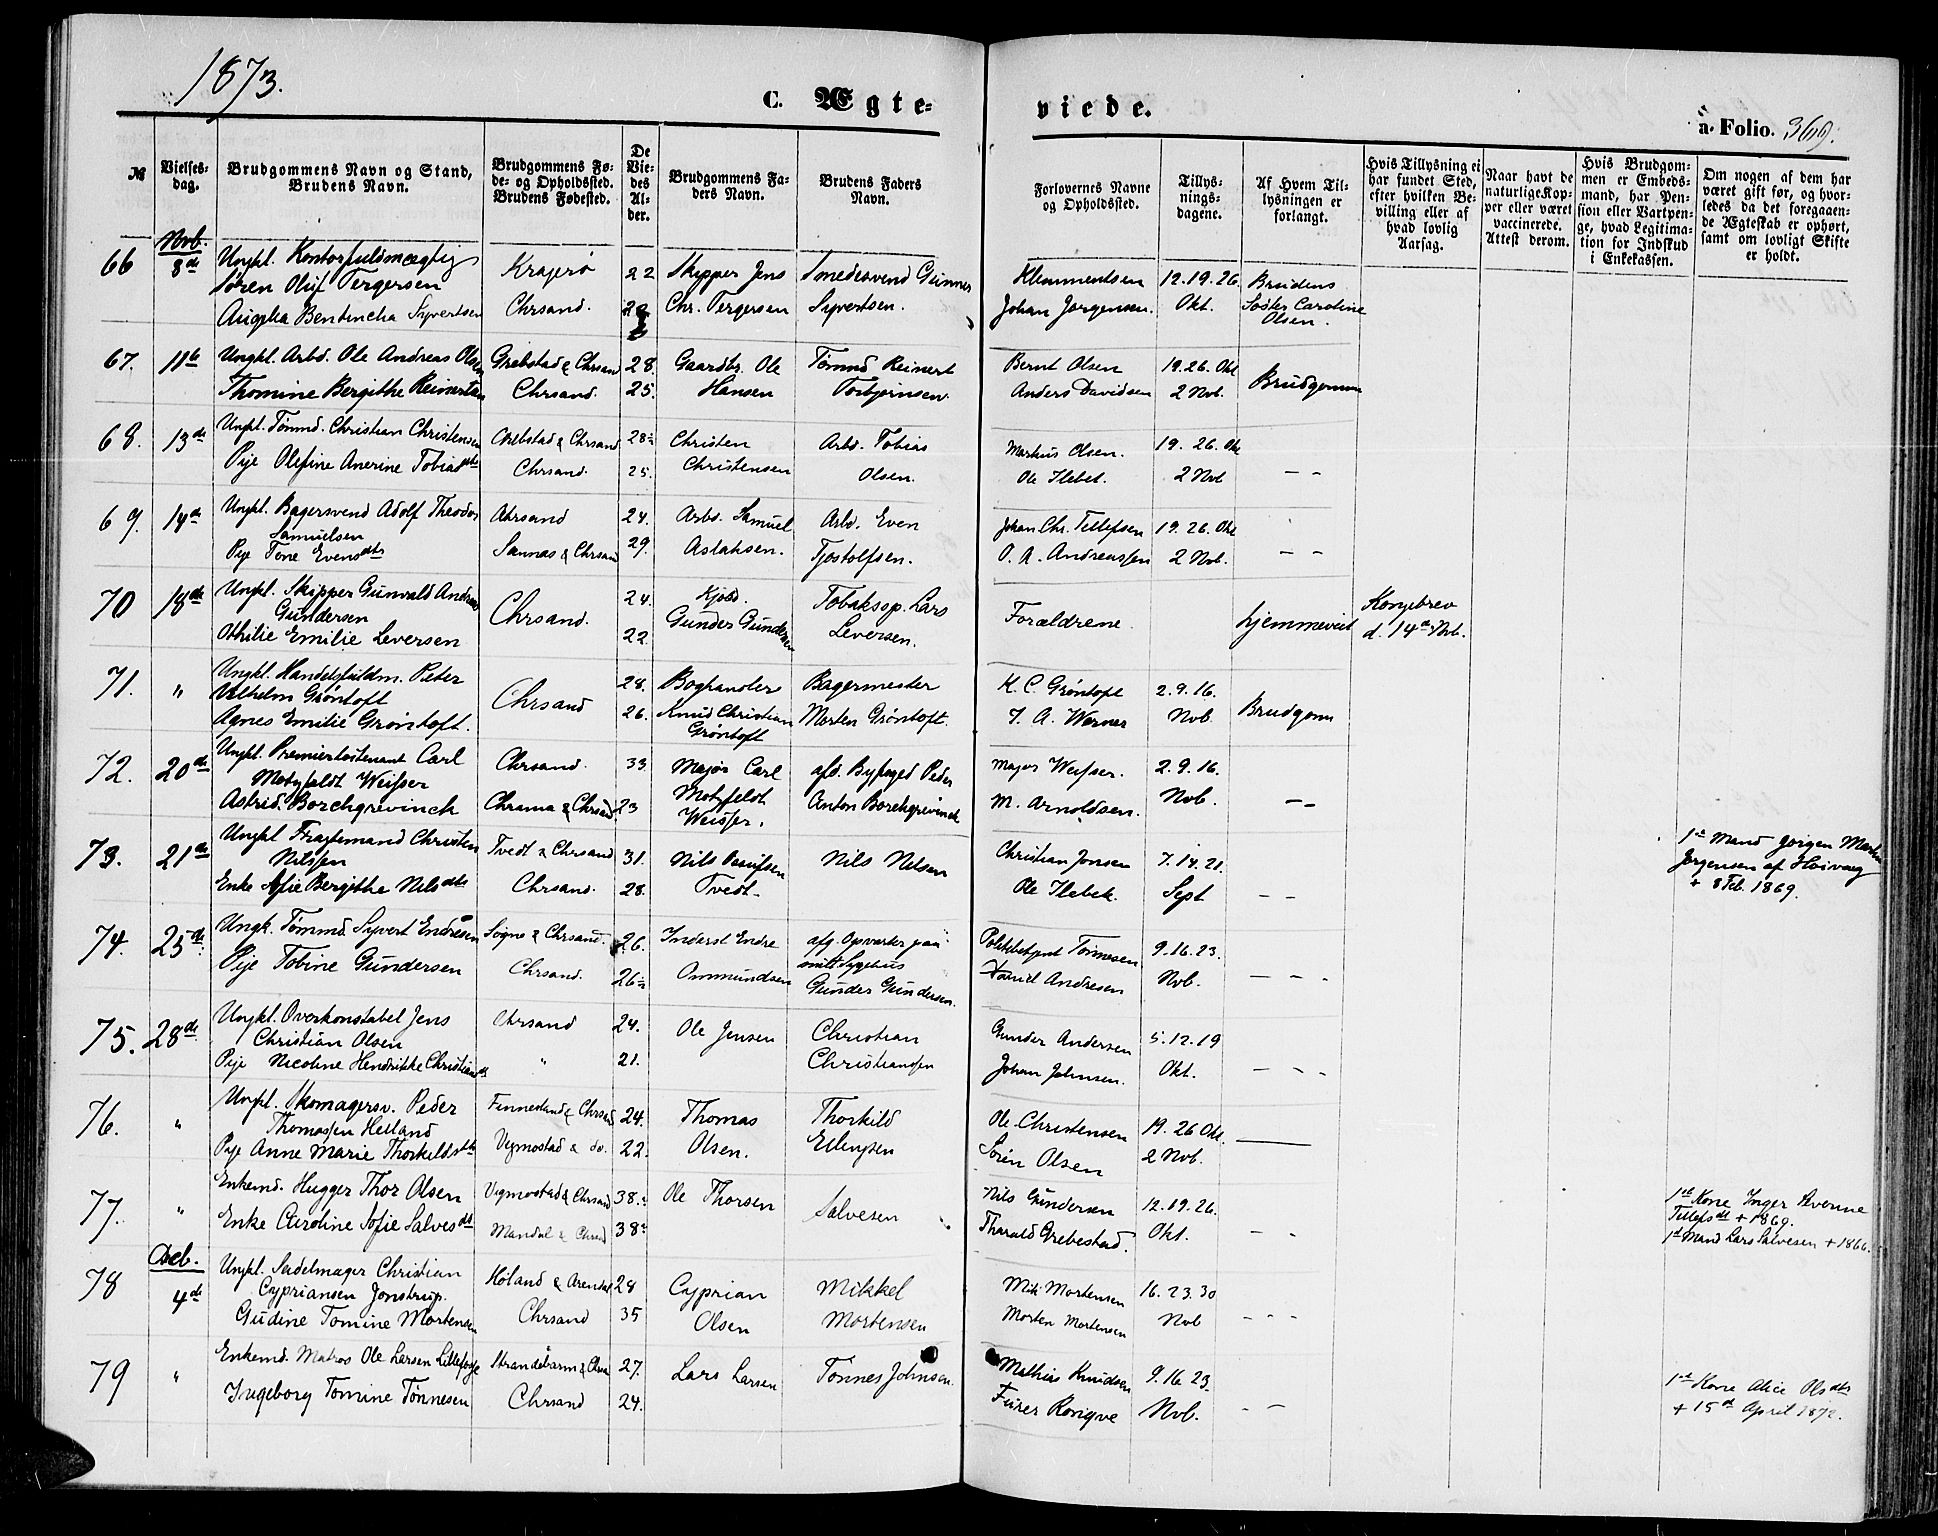 1873.
C. Ægte=
viede.
a. Folio. 369.
№
Vielses-
dag.
Brudgommens Navn og Stand,
Brudens Navn.
Brudgommens Fø-
de- og Opholdssted.
Brudens Fødested.
De
Vie-
des
Al-
der.
Brudgommens Fa-
ders Navn.
Brudens Faders
Navn.
Forlovernes Navne
og Opholdssted.
Tillys-
nings-
dagene.
Af Hvem Til-
lysningen er
forlangt.
Hvis Tillysning ei
har fundet Sted,
efter hvilken Be-
villing eller af
hvad lovlig
Aarsag.
Naar havt de
naturlige Kop-
per eller været
vaccinerede.
Attest derom.
Hvis Brudgom-
men er Embeds-
mand, har Pen-
sion eller Vartpen-
ge, hvad Legitima-
tion for Indskud
i Enkekassen.
Om nogen af dem har
været gift før, og hvor-
ledes da det foregaaen-
de Ægteskab er ophørt,
samt om lovligt Skifte
er holdt.
Nvb.
66 8de Ungkl. Kontorfuldmægtig Kragerø 22 Skipper Jens Smedesvend Gunner Klemmentsen 12.19.26. Brudens
Søren Oluf Tergersen Chr. Tergersen Syvertsen. Johan Jørgensen. Okt. Søster Caroline
Bentincha Syvertsen Chrsand. Olsen.
67. 11te Ungkl. Arbd. Ole Andreas Olsen Grebstad & Chrsand 28. Gaardbr. Ole Tømmd Reinert Bernt Olsen 19.26. Okt
Thomine Bergithe Reinertsen Chrsand. 25. Hansen Torbjørnsen. Anders Davidsen 2 Nvb. Brudgommen
68. 13de Ungkl. Tømmd. Christian Christensen Grebstad & Chrsand 28 Christen Arbd. Tobias Markus Olsen. 19. 26. Okt
Pije Olefine Anerine Tobiasdtr Chrsand. 25. Christensen Olsen. Ole Ilebek. 2 Nvb — —
69. 14de Ungkl. Bagersvend Adolf Theodor Chrsand 24. Arbd. Samuel Arbd. Even Johan Chr. Tellefsen 19. 26. Okt
Samuelsen
Pije Tone Evensdtr Sannæs & Chrsand 29. Aslaksen. Tjostolfsen. O. A. Andreassen 2 Nvb. — —
70 18de Ungkl. Skipper Gunvald Andreas 24. Kjøbd. Tobaksp. Lars Kongebrev
Gundersen Chrsand. Gunder Gundersen Leversen. Forældrene. hjemmeviet d. 14de Nvb.
Othilie Emilie Leversen 22.
71. " Ungkl. Handelsfuldm. Peter 28. Boghandler Bagermester K. C. Grøntoft 2.9.16.
Vilhelm Grøntoft Chrsand
Agnes Emilie Grøntoft. 26. Knud Christian Morten Grøntoft. J. A. Werner Nvb. Brudgom
Grøntoft
72. 20de Ungkl. Premierløitenant Carl Chrsand. 33. Major Carl afd. Byfoged Peder Major Weisser. 2.9.16.
Motzfeldt Weisser Motzfeldt
Astrid Borchgrevinck Chrania & Chrsand. 23 Weisser. Anton Borchgrevinck M. Arnoldsen. Nvb. — —
73. 21de Ungkl Fragtemand Christen Tvedt & Chrsand 31. Nils Nils Nilsen Christian Jonsen 7.14.21. 1ste Mand Jørgen Martin
Nilssen Jørgensen af Høivaag
Enke Sofie Bergithe Nilsdtr Chrsand. 28. Tvedt. Ole Ilebek. Sept — — + 8 Feb. 1869.
74. 25de Ungk. Tømmd. Syvert Endresen Søgne & Chrsand. 26. Inderst Endre afg. Opvarter paa Politibetjent Tønnesen 9.16.23.
Pije Tobine Gundersen Chrsand. 26 Ommundsen Sygehus Daniel Andresen Nvb. — — —
Gunder Gundersen.
75. 28de Ungkl. Overkonstabel Jens Chrsand 24. Ole Jensen Christian Gunder Andersen 5.12.19
Christian Olsen
Pije Nicoline Hendrikke Christiansdt " 21. Christianssen Johan Johnsen. Okt. — — —
76. " Ungkl. Skomagersv. Peder Finnesland & Chrsand 24. Thomas Thorkild Ole Christensen 19. 26 Okt. ———
Thomassen Heiland
Pije Anne Marie Thorkildsdtr Vegmostad & do. 22. Olsen. Ellingsen Sørin Olsen 2 Nvb.
77. " Enkemd. Hugger Thor Olsen Vegmostad & Chrsand 38. Ole Thorsen Salvesen Nils Gundersen 12.19.26. 1ste Kone Inger Severine
Tellefsdt + 1869.
Enke Caroline Sofie Salvesdt Mandal & Chrsand 38 Tharald Grebestad. Okt. — — 1st Mand Lars Salvesen + 1866.
Dcb.
78 4de Ungkl. Sadelmager Christian Høland & Arendal 28 Cyprian Mikkel Mik. Mortensen 16. 23. 30
Cypriansen Jonstrup.
Gudine Tomine Mortensen Chrsand 35 Olsen Mortensen Morten Mortensen Nvb — — —
79 " Enkemd. Matros Ole Larsen Strandebarm & Chrsa 27. Lars Larsen Tønnes Johnsen. Mathias Knudsen 9.16 23. 1ste Kone Alice Olsdtr
Ingeborg Tomine Tønnesen Chrsand 24. Nvb. — — + 15de April 1872.